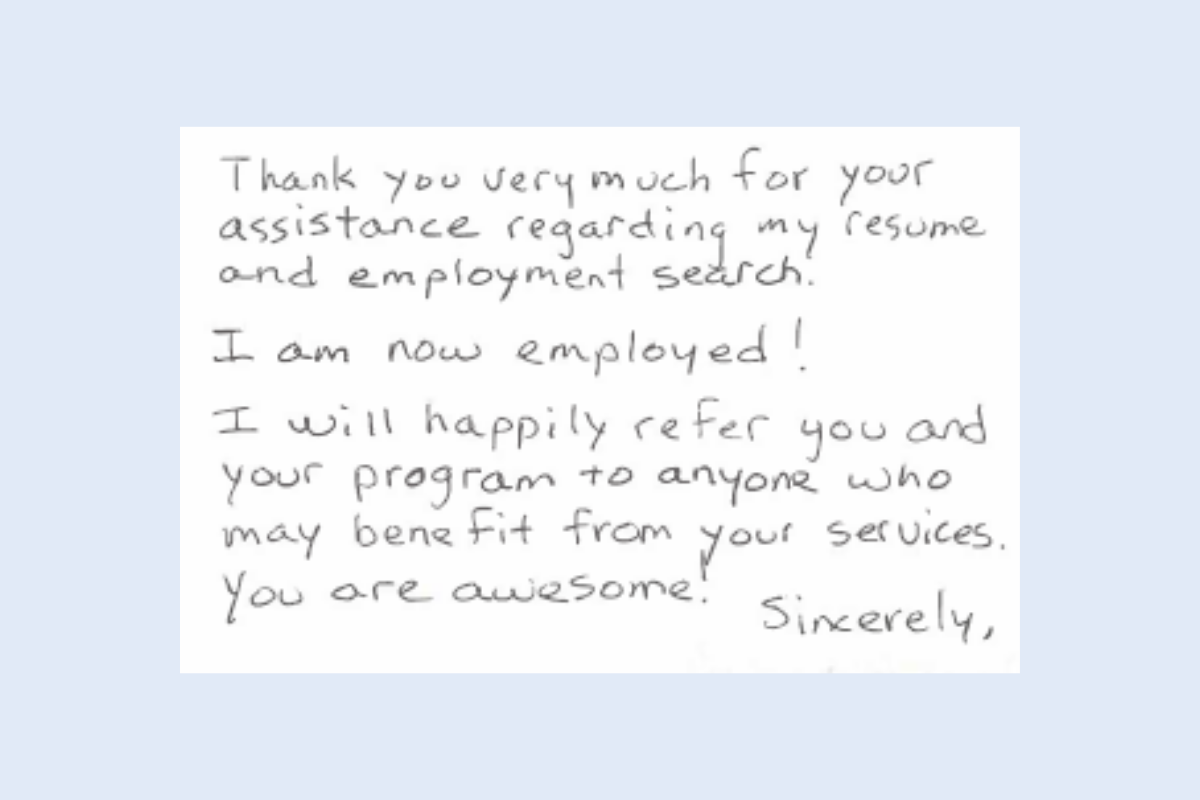 Thank you very much for your
assistance regarding my resume
and employment search!
I am now employed!
I will happily refer you and
your program to anyone who
may benefit from your services.
You are awesome!
Sincerely,